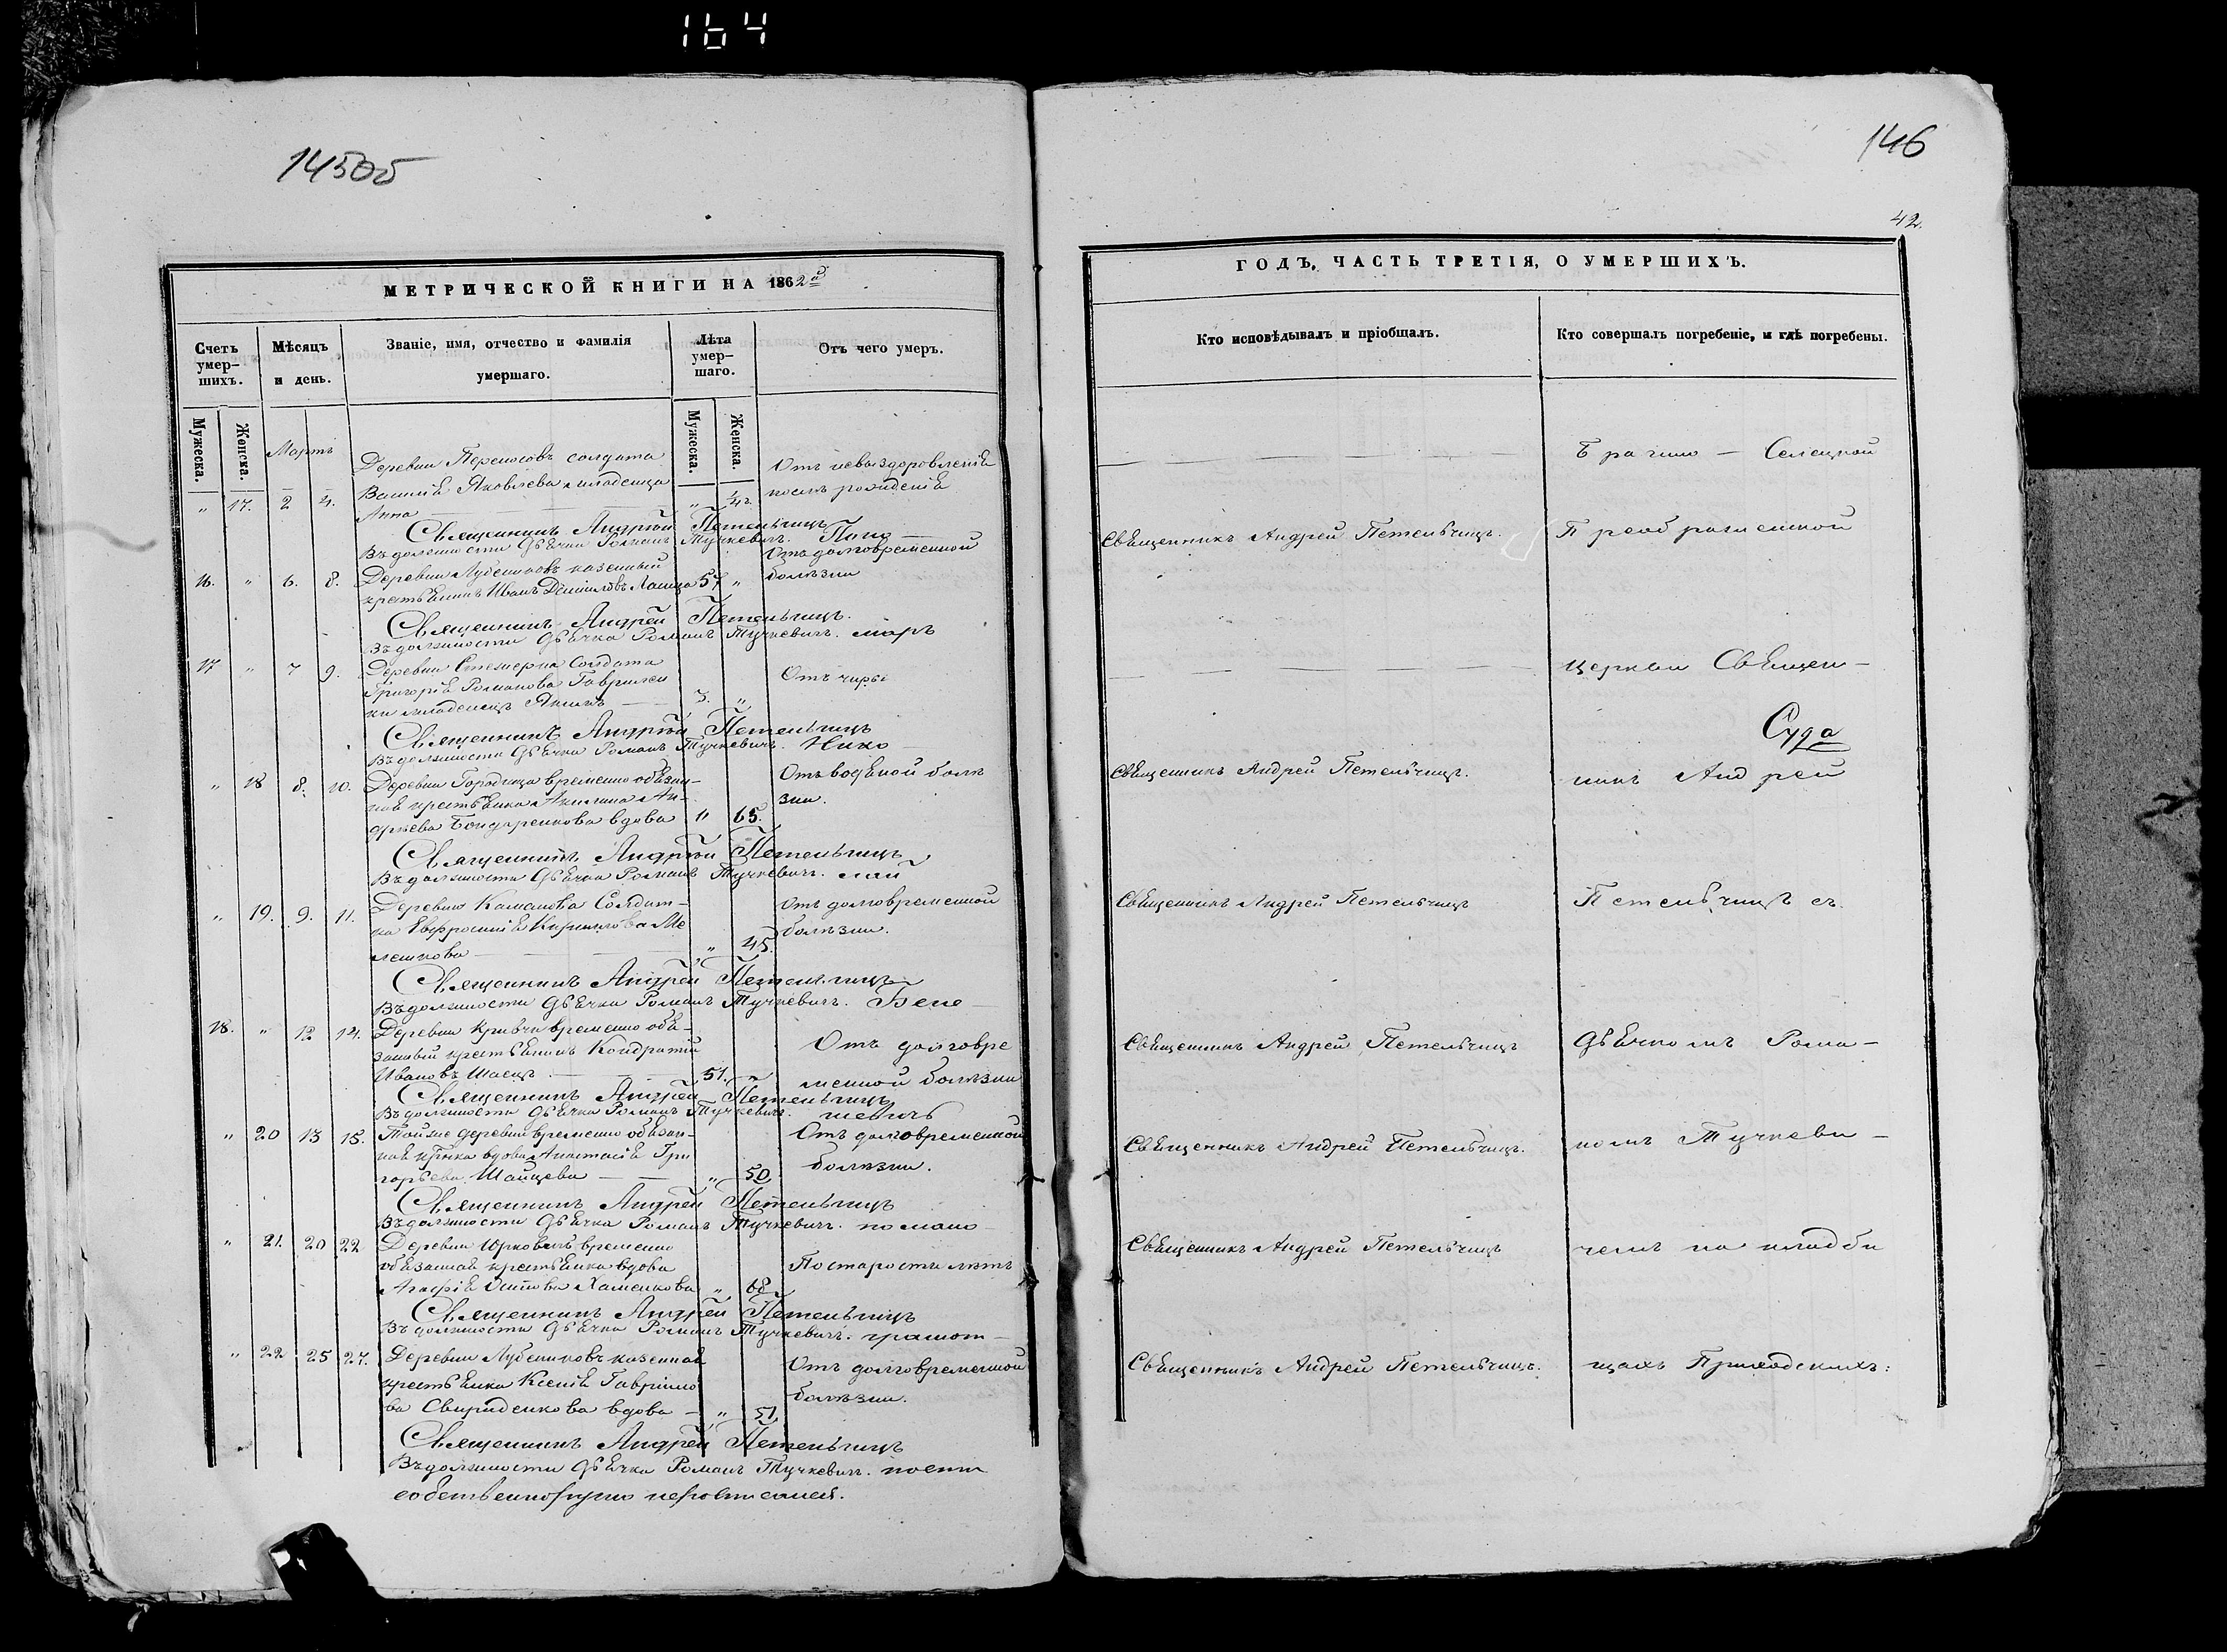 164
145об
146
42.
МЕТРИЧЕСКОЙ КНИГИ НА 1862й
ГОДЪ, ЧАСТЬ ТРЕТІЯ, О УМЕРШИХЪ.
Счетъ умер-шихъ.
Мѣсяцъ и день.
Званіе, имя, отчество и фамилія умершаго.
Лѣта умер-шаго.
Отъ чего умеръ.
Кто исповѣдывалъ и пріобщалъ.
Кто совершалъ погребеніе, и гдѣ погребены.
Мужеска. Женска.
Мужеска. Женска.
Мартъ
Деревни солдата
Отъ невыздоровленія
" 17. 2 4. Василія Яковлева младенца " 1/4 г. послѣ рожденія
Анна
Священникъ Андрей Петельчицъ
Въ должности Дьячка Романъ Тучкевичъ. Поно-
16. " 6. 8. Деревни казенный 57 " Отъ долговременной
крестьянинъ Иванъ Даниловъ болѣзни
Священникъ Андрей Петельчицъ.
Въ должности Дьячка Романъ Тучкевичъ. марь
17 " 7 9. Деревни Солдата
Григорія Романова Отъ
младенецъ 3. "
Священникъ Андрей Петельчицъ
Въ должности Дьячка Романъ Тучкевичъ. Нико-
" 18 8. 10. Деревни Городища временно обязан- Отъ водяной болѣ
ная крестьянка Акилина Ан- зни.
дреева Бондаренкова вдова " 65.
Священникъ Андрей Петельчицъ
Въ должности Дьячка Романъ Тучкевичъ. лай
" 19. 9. 11. Деревни Солдат- Отъ долговременной
ка Евфросинія Кириллова Ме " 45. болѣзни.
лешкова
Священникъ Андрей Петельчицъ
Въ должности Дьячка Романъ Тучкевичъ. Бене-
18. " 12 14. Деревни Кривчи временно обя-
занный крестьянинъ Кондратій Отъ долговре
Ивановъ 51. " менной болѣзни
Священникъ Андрей Петельчицъ
Въ должности Дьячка Романъ Тучкевичъ.
" 20 13 15. Тойже деревни временно обязан- Отъ долговременной
ная вдова Анастасія Гри болѣзни.
горьева " 50
Священникъ Андрей Петельчицъ
Въ должности Дьячка Романъ Тучкевичъ.
" 21. 20 22 Деревни временно
обязанная крестьянка вдова По старости лѣтъ
Агафія Хаменкова " 68
Священникъ Андрей Петельчицъ
Въ должности Дьячка Романъ Тучкевичъ. грамот-
" 22 25 27. Деревни казенная Отъ долговременной
крестьянка Ксенія Гаврило болѣзни.
ва Свириденкова вдова " 51
Священникъ Андрей Петельчицъ
Въ должности Дьячка Романъ Тучкевичъ.
Брагино - Селецкой
Священникъ Андрей Петельчицъ. Преображенской
церкви Священ-
Суда
Священникъ Андрей Петельчицъ. никъ Андрей
Священникъ Андрей Петельчицъ Петельчицъ съ
Священникъ Андрей Петельчицъ Дьячкомъ Рома-
Священникъ Андрей Петельчицъ. номъ Тучкеви-
Священникъ Андрей Петельчицъ чемъ на кладби
Священникъ Андрей Петельчицъ. щахъ Приходскихъ: